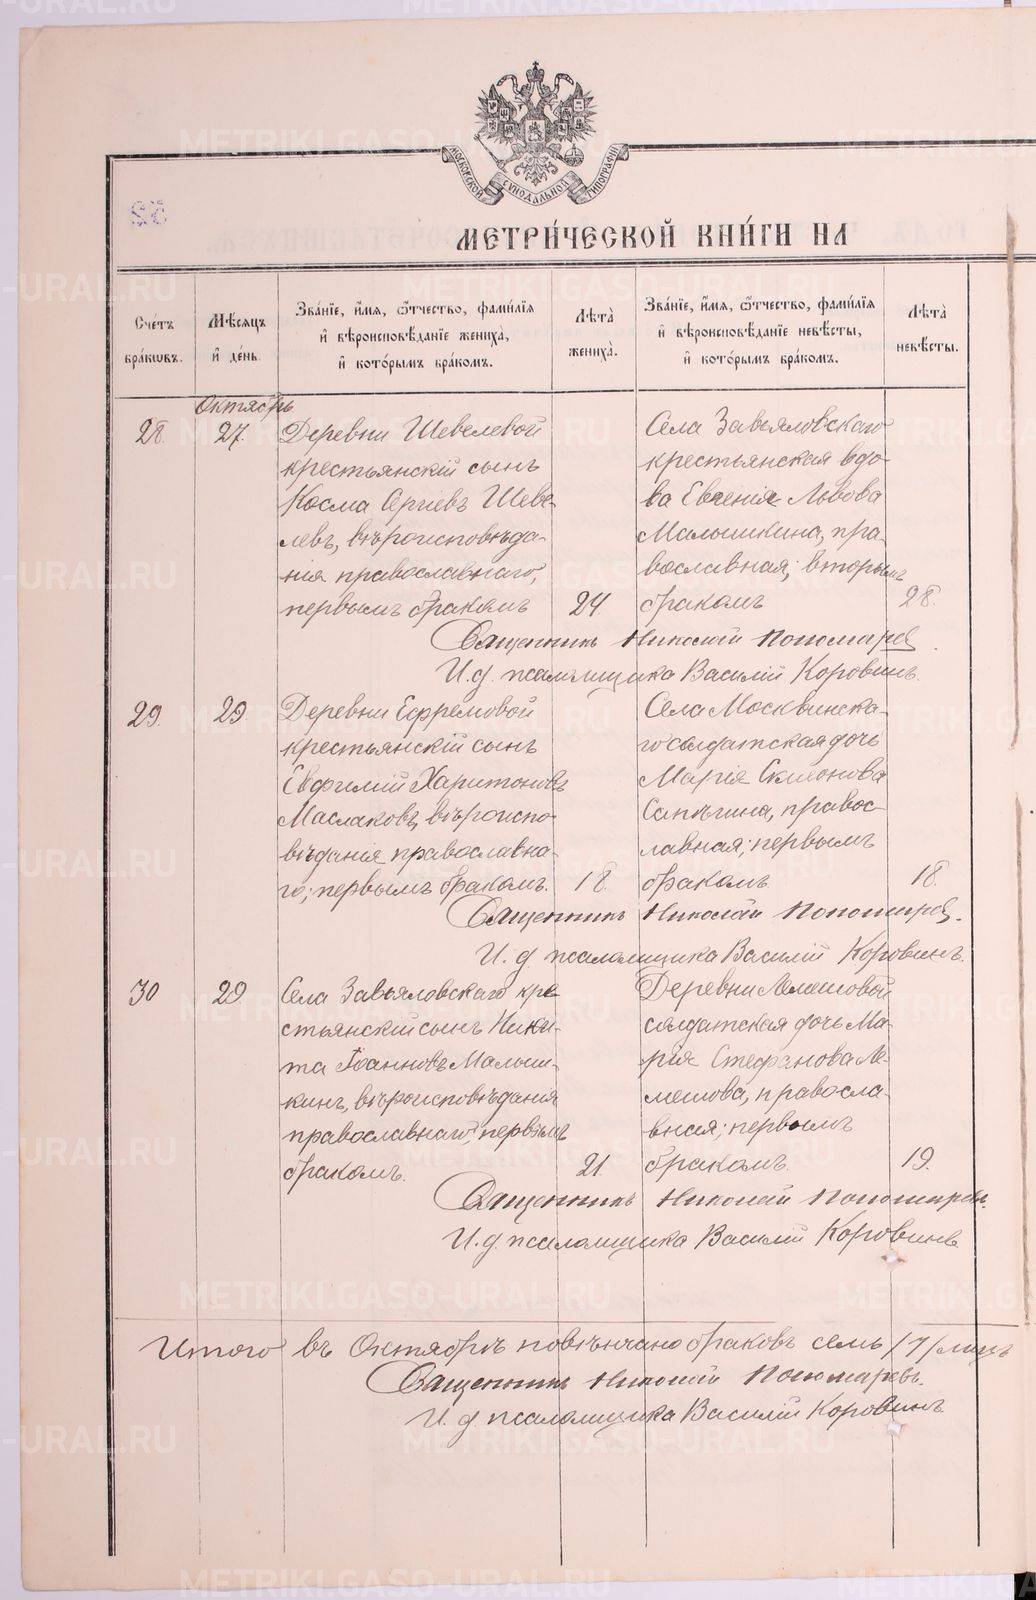 МОСКОВСКОЙ СѴНОДАЛЬНОЙ ТИПОГРАФІИ
52
МЕТРИ́ЧЕСКОЙ КНИ́ГИ НА
Сче́тъ бра́ковъ.
Мѣ́сяцъ и҆ де́нь.
Зва́нїе, и҆́мя, ѻ҆́тчество, фами́лїя и҆ вѣроисповѣ́данїе жениха̀, и҆ кото́рымъ бра́комъ.
Лѣ́та жениха̀.
Зва́нїе, и҆́мя, ѻ҆́тчество, фами́лїя и҆ вѣроисповѣ́данїе невѣ́сты, и҆ кото́рымъ бра́комъ.
Лѣ́та невѣ́сты.
Октябрь
28.
27.
Деревни Шевелевой
крестьянскій сынъ
Косма Сергіевъ Шеве-
левъ, вѣроисповѣда-
нія православнаго,
первымъ бракомъ
24.
Села Завьяловскаго
крестьянская вдо-
ва Евгенія Львова
Малышкина, пра-
вославная; вторымъ
бракомъ
28.
Священникъ Николай Пономарев
И. д. псаломщика Василій Коровинъ.
29.
29
Деревни Ефремовой
крестьянскій сынъ
Евфимій Харитоновъ
Маслаковъ, вѣроиспо-
вѣданія православна-
го; первымъ бракомъ.
18.
Села Москвинска-
го солдатская дочь
Марія Симонова
Сапѣгина, правос-
лавная; первымъ
бракомъ.
18.
Священникъ Николай Пономарев.
И. д. псаломщика Василій Коровинъ.
30
29
Села Завьяловскаго кре-
стьянскій сынъ Ники-
та Іоанновъ Малыш-
кинъ, вѣроисповѣданія
православнаго, первымъ
бракомъ.
21.
Деревни Лемешовой
солдатская дочь Ма-
рія Стефанова Ле-
мешова, правосла-
вная; первымъ
бракомъ.
19.
Священникъ Николай Пономаревъ.
И. д. псаломщика Василій Коровинъ
Итого въ Октябрѣ повѣнчано браковъ семь /7/
Священникъ Николай Пономаревъ.
И. д. псаломщика Василій Коровинъ
METRIKI.GASO-URAL.RU